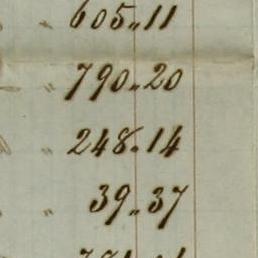 605 „ 11
„ 790 „ 20
„ 248 „ 14
„ 39 „ 37